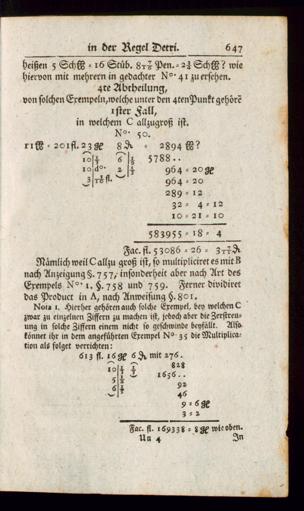 in der Regel Detri. 647
heißen 5 Sch℔ = 16 Stüb. 8 7/12 Pen. = 2 3/4 Sch℔? wie
hiervon mit mehrern in gedachter No. 41 zu ersehen.
4te Abtheilung,
von solchen Exempeln, welche unter den 4ten Punkt gehörē
1ster Fall,
in welchem C allzugroß ist.
No. 50.
11℔ = 201 fl. 23 8 = 2894 ℔?
10 6 5788..
10 do. 2 964 = 20
3 fl. 964 = 20
289 = 12
32 = 4 = 12
10 = 21 = 10
583955 = 18 = 4
Fac. fl. 53086 = 26 =
Nämlich weil C allzu groß ist, so multipliciret es mit B
nach Anzeigung §. 757, insonderheit aber nach Art des
Exempels No. 1. §. 758 und 759. Ferner dividiret
das Product in A, nach Anweisung §. 801.
Nota 1. Hierher gehören auch solche Exempel, bey welchen C
zwar zu einzelnen Ziffern zu machen ist, jedoch aber die Zerstreu-
ung in solche Ziffern einem nicht so geschwinde beyfällt. Also
könnet ihr in dem angeführten Exempel No. 35 die Multiplica-
tion als folget verrichten:
613 fl. 16 6 mit 276.
10 828
5 1656..
6 92
46
9 = 6
3 = 2
Fac. fl. 169338 = 8 wie oben.
Uu 4 In